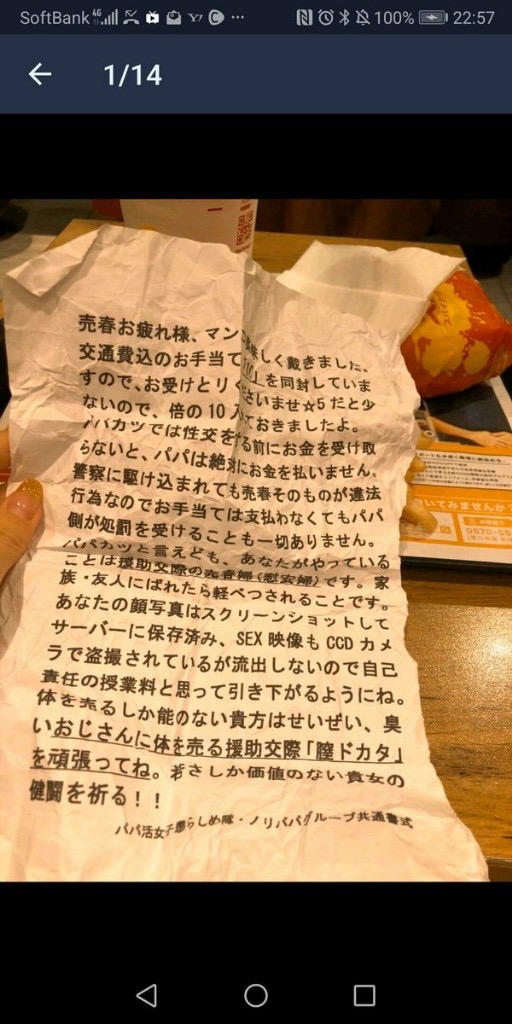 SoftBank 4G 100% 22:57
1/14
売春お疲れ様、マン 味しく戴きました。
交通費込のお手当て 」を同封していま
すので、お受けとりくださいませ☆5だと少
ないので、倍の10 ておきましたよ。
パパカツでは性交をする前にお金を受け取
らないと、パパは絶対にお金を払いません。
警察に駆け込まれても売春そのものが違法
行為なのでお手当ては支払わなくてもパパ
側が処罰を受けることも一切ありません。
パパカツと言えども、あなたがやっている
ことは援助交際の売春婦(慰安婦)です。家
族・友人にばれたら軽べつされることです。
あなたの顔写真はスクリーンショットして
サーバーに保存済み、SEX映像もCCDカメ
ラで盗撮されているが流出しないので自己
責任の授業料と思って引き下がるようにね。
体を売るしか能のない貴方はせいぜい、臭
いおじさんに体を売る援助交際「膣ドカタ」
を頑張ってね。若さしか価値のない貴女の
健闘を祈る!!
パパ活女子懲らしめ隊・ノリパパグループ共通書式
いてみませんか?
0570-55